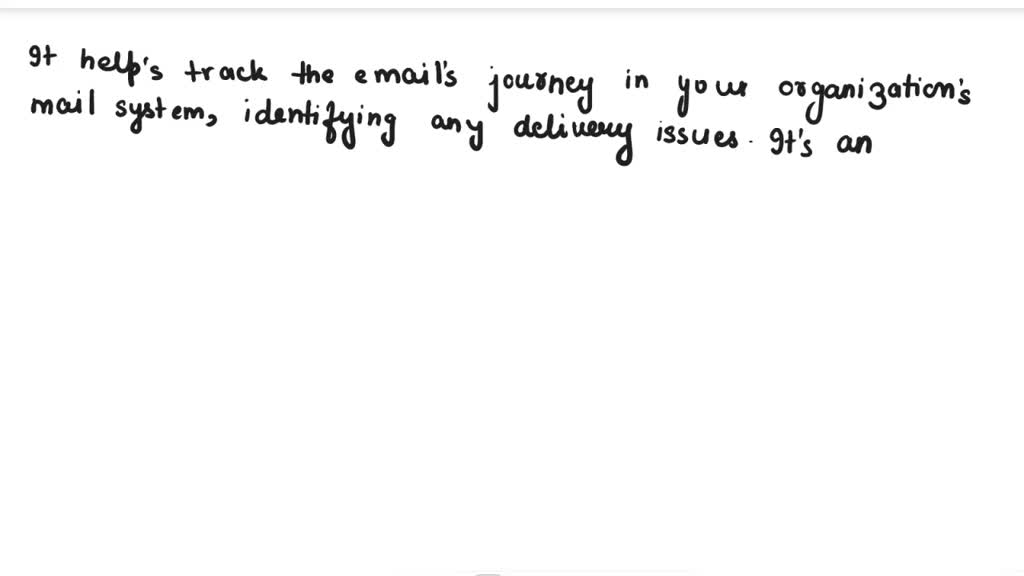 It help's track the email's journey in your organization's
mail system, identifying any delivery issues. It's an